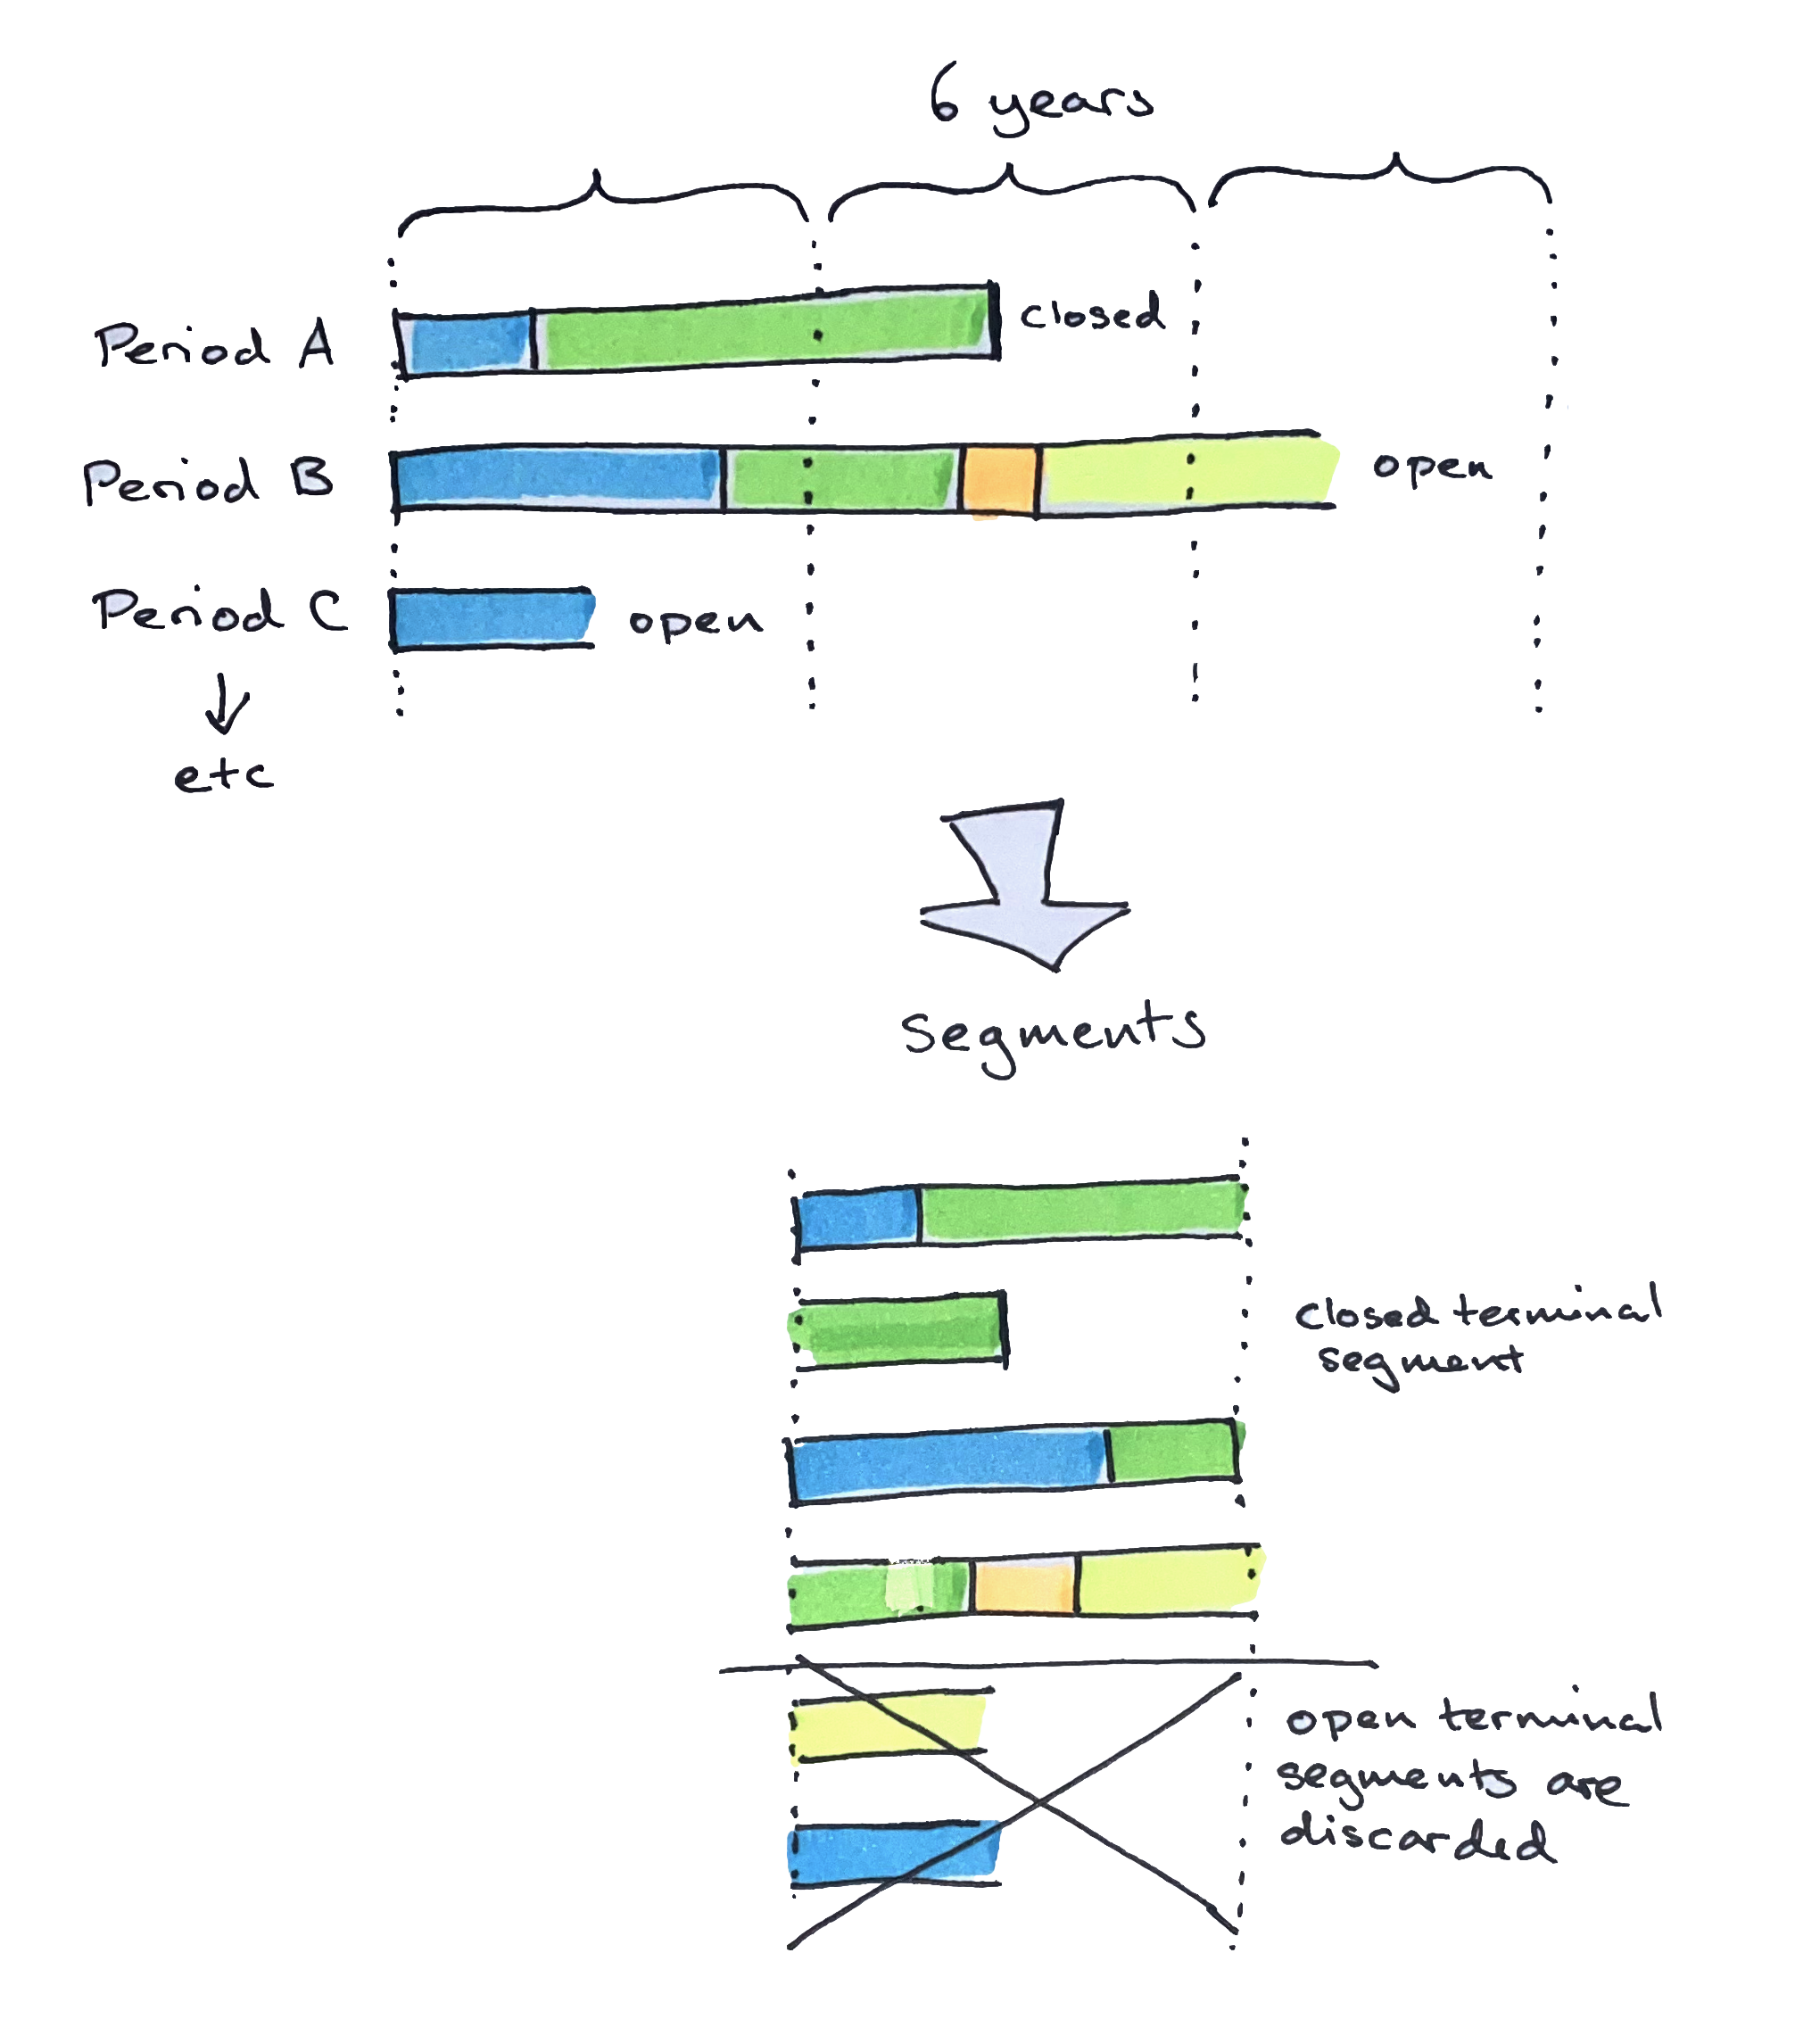 6 years
Period A
closed
Period B
open
Period C
open
etc
Segments
closed terminal
segment
open terminal
segments are
discarded